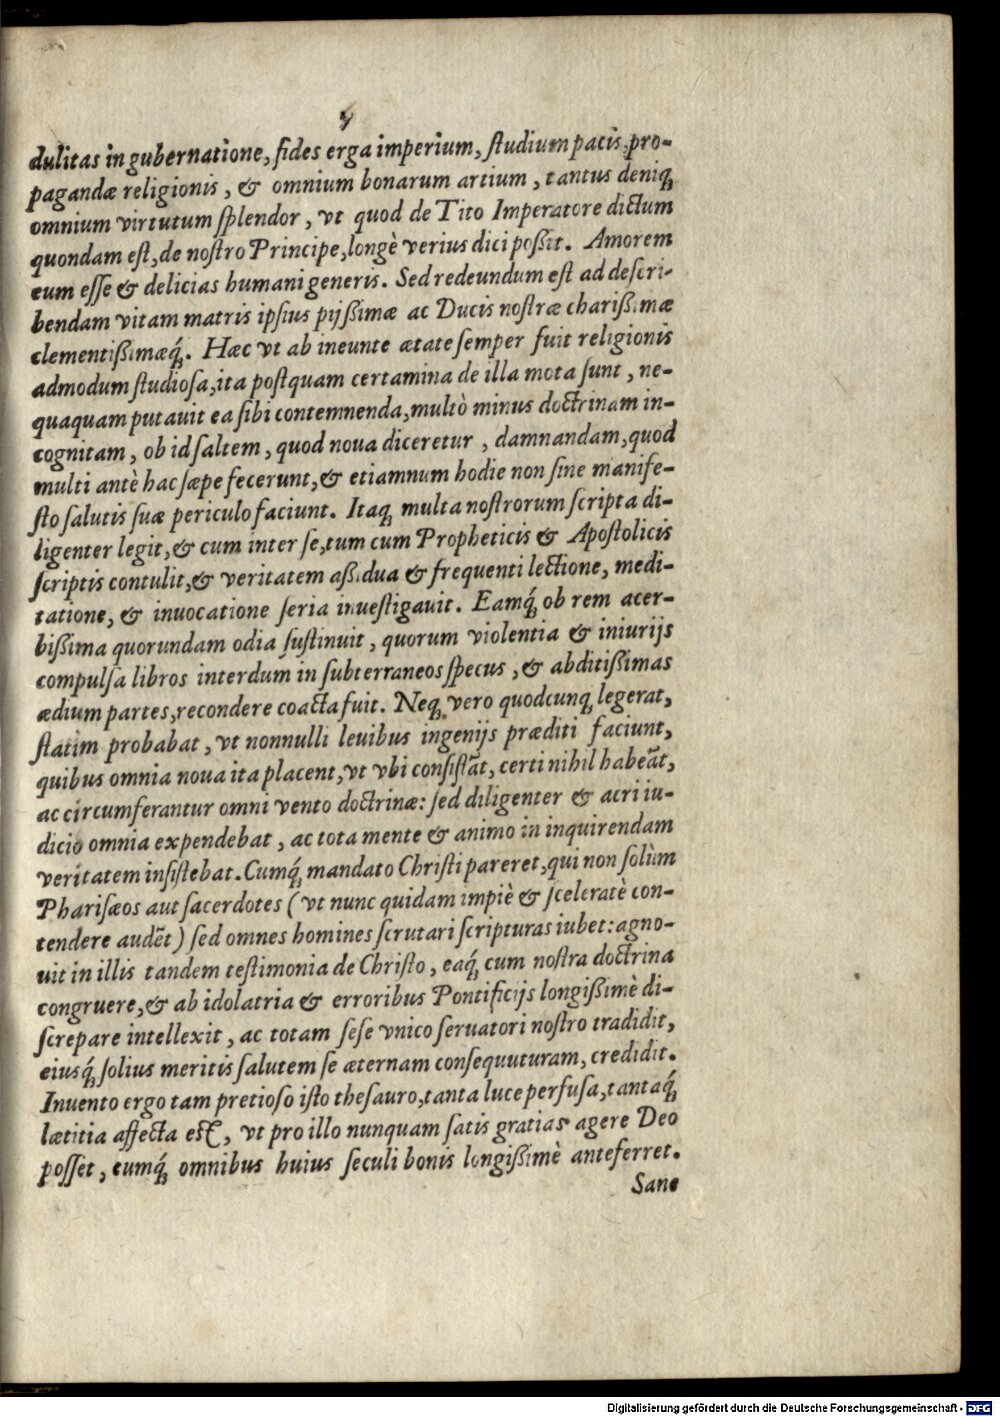 dulitas in gubernatione, fides erga imperium, ſtudium pacis, pro-
pagandæ religionis, & omnium bonarum artium, tantus deniq́;
omnium virtutum ſplendor, vt quod de Tito Imperatore dictum
quondam eſt, de noſtro Principe, longè verius dici poßit. Amorem
eum eſſe & delicias humani generis. Sed redeundum eſt ad deſcri-
bendam vitam matris ipſius pijßimæ ac Ducis noſtræ charißimæ
clementißimæq́;. Hæc vt ab ineunte ætate ſemper fuit religionis
admodum ſtudioſa, ita poſtquam certamina de illa mota ſunt, ne-
quaquam putauit ea ſibi contemnenda, multò minus doctrinam in-
cognitam, ob id ſaltem, quod noua diceretur, damnandam, quod
multi antè hac ſæpe fecerunt, & etiamnum hodie non ſine manife-
ſto ſalutis ſuæ periculo faciunt. Itaq; multa noſtrorum ſcripta di-
ligenter legit, & cum inter ſe, tum cum Propheticis & Apoſtolicis
ſcriptis contulit, & veritatem aßidua & frequenti lectione, medi-
tatione, & inuocatione ſeria inueſtigauit. Eamq́; ob rem acer-
bißima quorundam odia ſuſtinuit, quorum violentia & iniurijs
compulſa libros interdum in ſubterraneos ſpecus, & abditißimas
ædium partes, recondere coacta fuit. Neq; vero quodcunq; legerat,
ſtatim probabat, vt nonnulli leuibus ingenijs præditi faciunt,
quibus omnia noua ita placent, vt vbi conſiſtāt, certi nihil habeāt,
ac circumferantur omni vento doctrinæ: ſed diligenter & acri iu-
dicio omnia expendebat, ac tota mente & animo in inquirendam
veritatem inſiſtebat. Cumq́; mandato Chriſti pareret, qui non ſolùm
Phariſæos aut ſacerdotes (vt nunc quidam impiè & ſceleratè con-
tendere audēt) ſed omnes homines ſcrutari ſcripturas iubet: agno-
uit in illis tandem teſtimonia de Chriſto, eaq́; cum noſtra doctrina
congruere, & ab idolatria & erroribus Pontificijs longißimè di-
ſcrepare intellexit, ac totam ſeſe vnico ſeruatori noſtro tradidit,
eiusq́; ſolius meritis ſalutem ſe æternam conſequuturam, credidit.
Inuento ergo tam pretioſo iſto theſauro, tanta luce perfuſa, tantaq́;
lætitia affecta eſt, vt pro illo nunquam ſatis gratias agere Deo
poſſet, eumq́; omnibus huius ſeculi bonis longißimè anteferret.
Sane
Digitalisierung gefördert durch die Deutsche Forschungsgemeinschaft - DFG